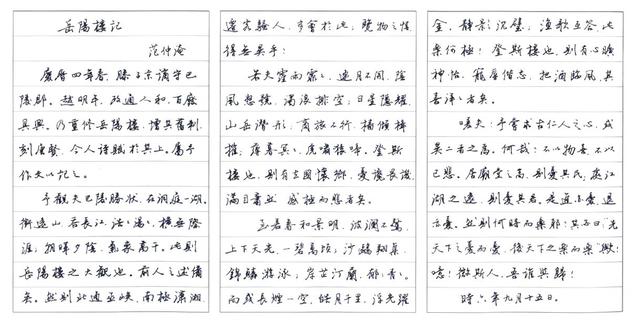 岳陽樓記
范仲淹
慶曆四年春，滕子京謫守巴
陵郡。越明年，政通人和，百廢
具興。乃重修岳陽樓，增其舊制，
刻唐賢、今人詩賦於其上。屬予
作文以記之。
予觀夫巴陵勝狀，在洞庭一湖。
銜遠山，吞長江，浩々湯々，橫無際
涯；朝暉夕陰，氣象萬千。此則
岳陽樓之大觀也。前人之述備
矣。然則北通巫峽，南極瀟湘，
遷客騷人，多會於此；覽物之情，
得無異乎？
若夫霪雨霏々，連月不開；陰
風怒號，濁浪排空；日星隱耀，
山岳潛形；商旅不行，檣傾楫
摧；薄暮冥々，虎嘯猿啼。登斯
樓也，則有去國懷鄉，憂讒畏譏，
滿目蕭然，感極而悲者矣。
至若春和景明，波瀾不驚，
上下天光，一碧萬頃；沙鷗翔集，
錦鱗游泳；岸芷汀蘭，郁々青々。
而或長煙一空，皓月千里，浮光躍
金，靜影沉璧；漁歌互答，此
樂何極！登斯樓也，則有心曠
神怡，寵辱偕忘，把酒臨風，其
喜洋々者矣。
嗟夫！予嘗求古仁人之心，或
異二者之為。何哉？不以物喜，不以
己悲。居廟堂之高，則憂其民；處江
湖之遠，則憂其君。是進亦憂，退
亦憂。然則何時而樂耶？其必曰“先
天下之憂而憂，後天下之樂而樂”歟！
噫！微斯人，吾誰與歸！
時六年九月十五日。